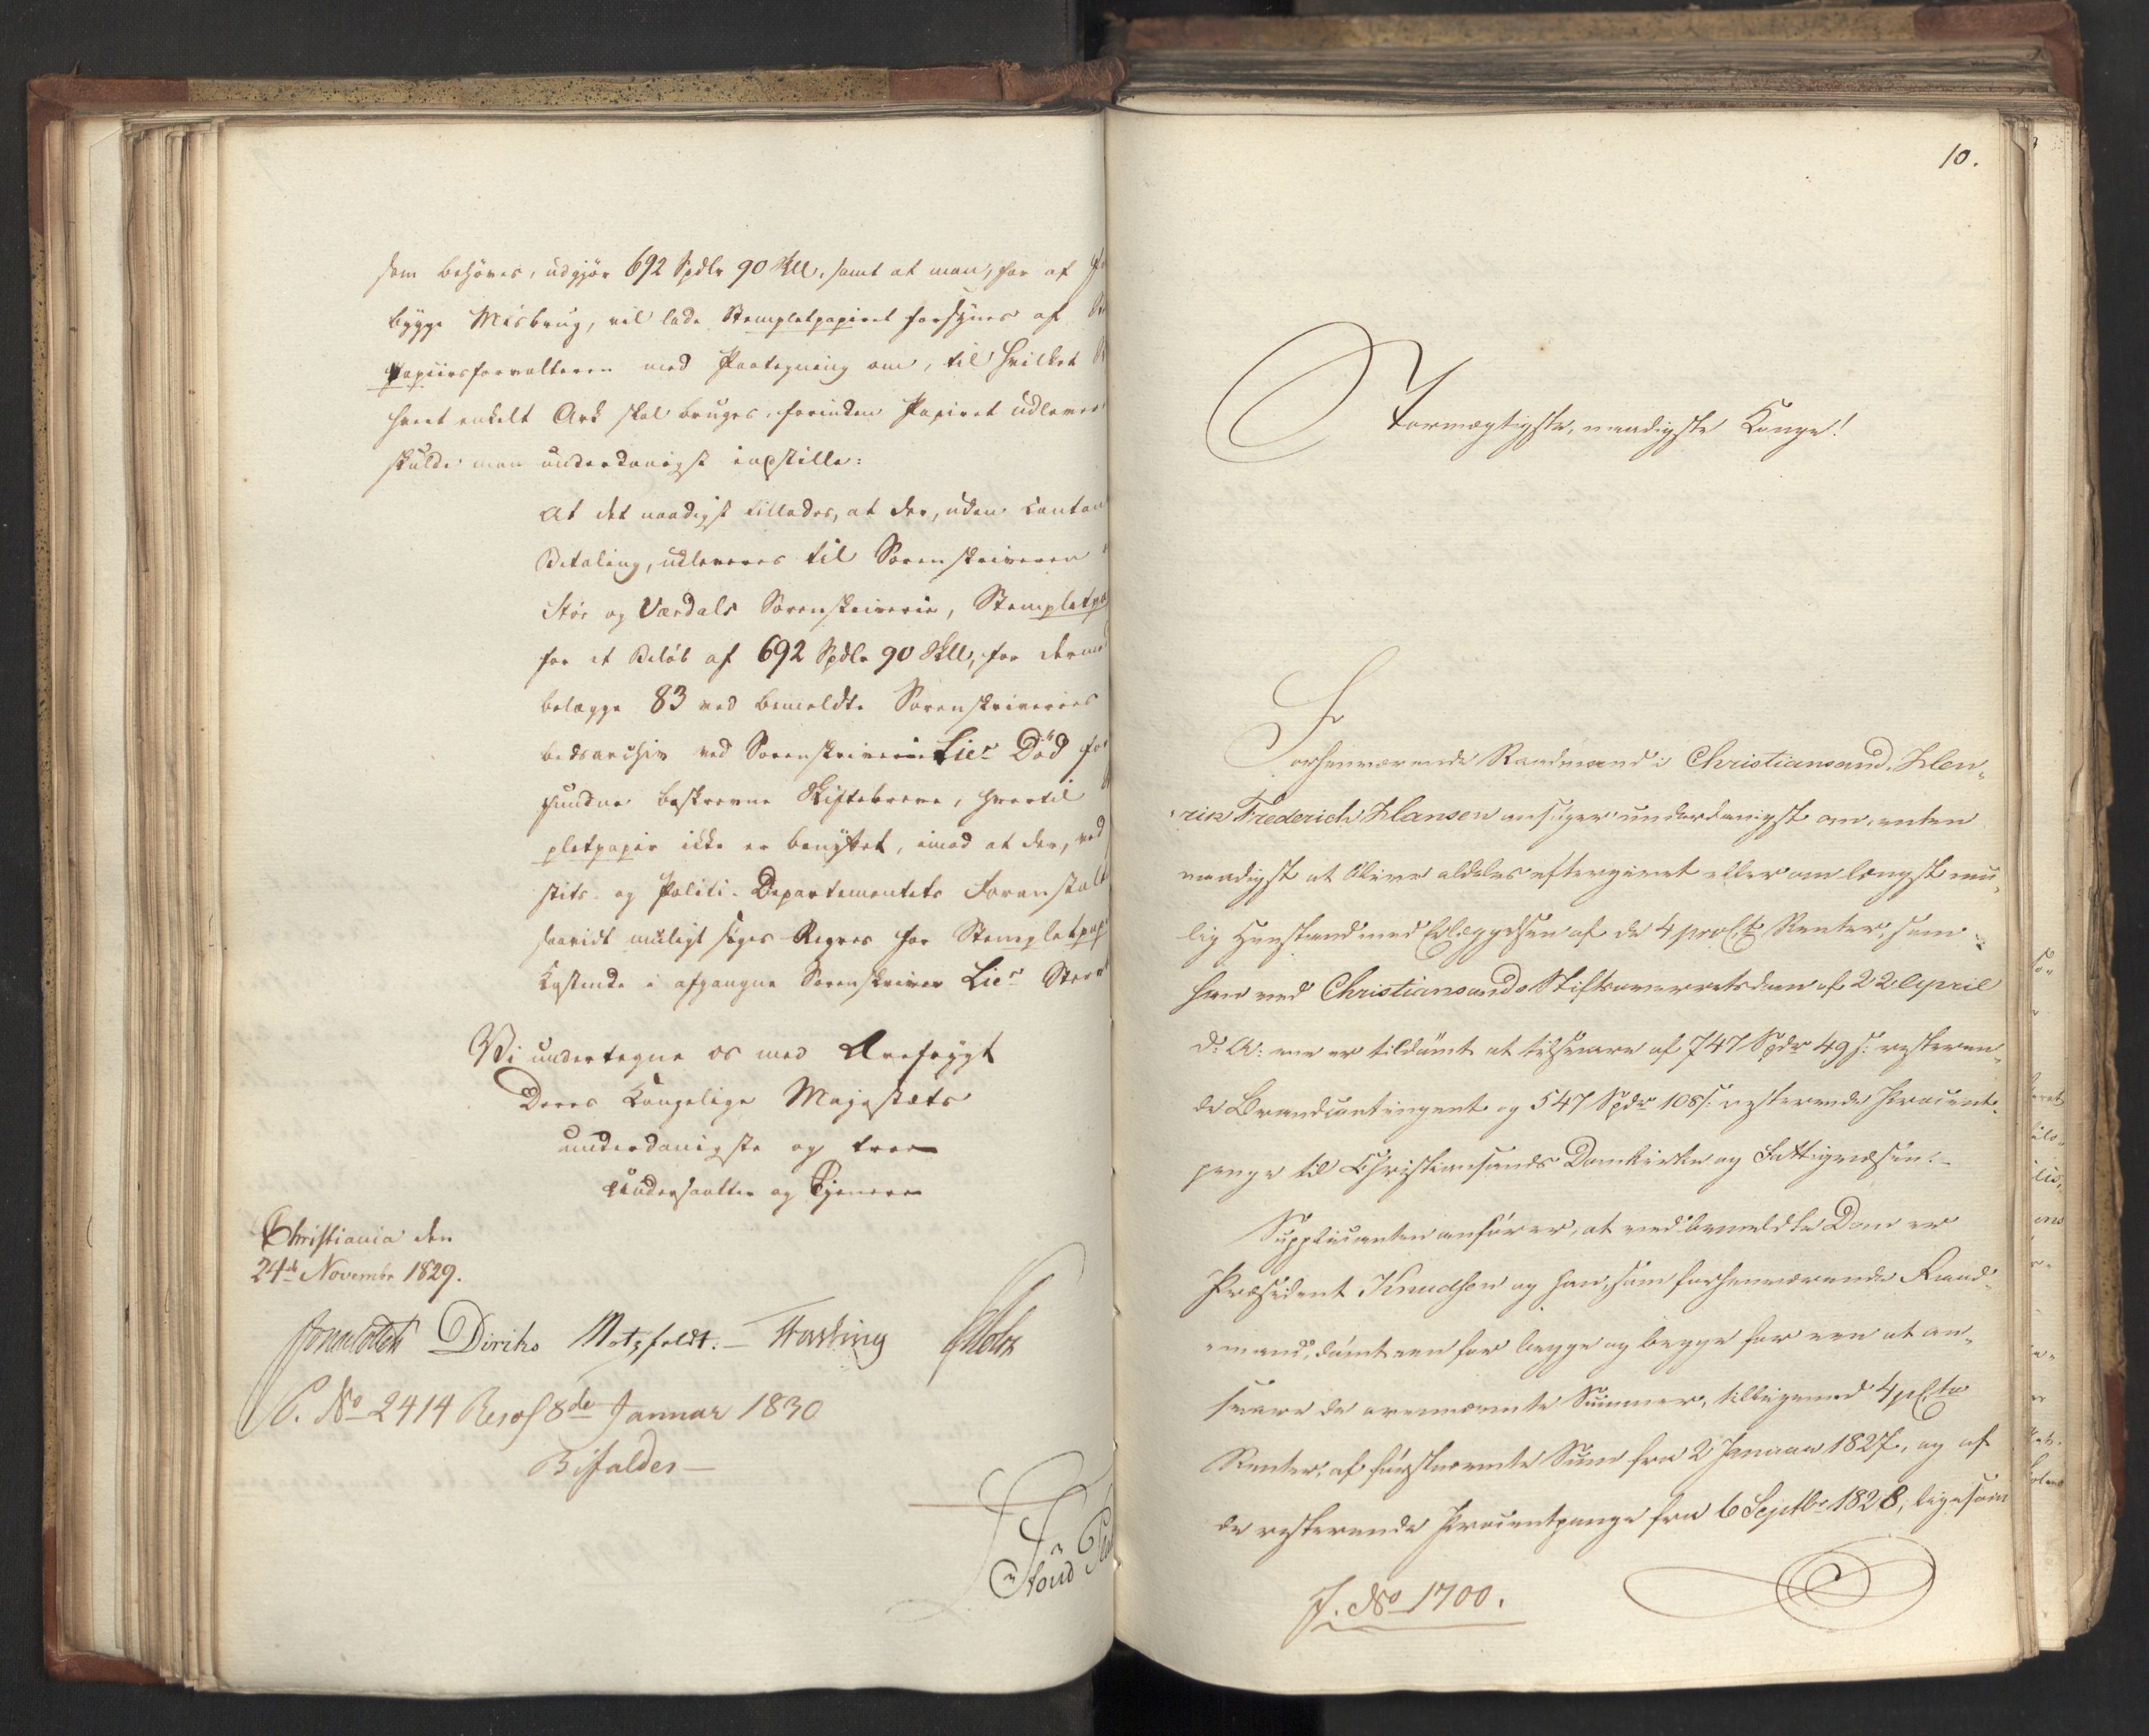 som behöves, udgjør 692 Spdlr 90 Skll, samt at man, for at
bygge Misbrug, vil lade Stempletpapiret forsynes af
papiirsforvalteren med Paategning om, til hvilket
hvert enkelt Ark skal bruges, forinden Papiret udlever
skulde man underdanigst indstille:
At det naadigst tillades, at der, uden Contan
Betaling, udleveres til Sorenskriveren
Stör og Værdals Sorenskriverie, Stempletpa
for et Beløb af 692 Spdlr 90 Skll, for dermed
belægge 83 ved bemeldte Sorenskriveries
bedsarchiv ved Sorenskriver Lies Død
fundne beskrevne Skiftebreve, hvortil
pletpapir ikke er benyttet, imod at der, ved
stits- og Politi-Departementets Foranstalt
saavidt muligt søges Regres for Stempletpap
Kostende i afgangne Sorenskriver Lies
Vi undertegne os med Ærefrygt
Deres Kongelige Majestæts
underdanigste og troe
Undersaatter og Tjenere
Christiania den
24de November 1829.
Diriks Motzfeldt. Fasting Holst
P. No 2414 Resol 8de Januar 1830
Bifaldes
10.
Stormægtigste, naadigste Konge!
Forhenværende Raadmand i Christiansand, Hen-
rik Frederich Hansen ansøger underdanigst om, enten
naadigst at blive aldeles eftergivet eller om længst mu-
lig Henstand med Erlæggelsen af de 4 proCt Renter, som
han ved Christiansands Stiftsoverretsdom af 22 April
d: A: er tildømt at tilsvare af 747 Spdr 49 s: resteren-
de Brandcontingent og 547 Spdr 108 s: resterende Procent-
penge til Christiansands Domkirke og Fattigvæsen.
Supplicanten anfører, at ved bemeldte Dom er
Præsident Knudsen og han, som forhenværende Raad-
mand, dømt een for begge og begge for een at an-
svare de ovennævnte Summer, tilligemed 4 pCto
Renter, af førstnævnte Sum fra 2 Januar 1827, og af
de resterende Procentpenge fra 6 Septbr 1828, ligesom
J. No 1700.